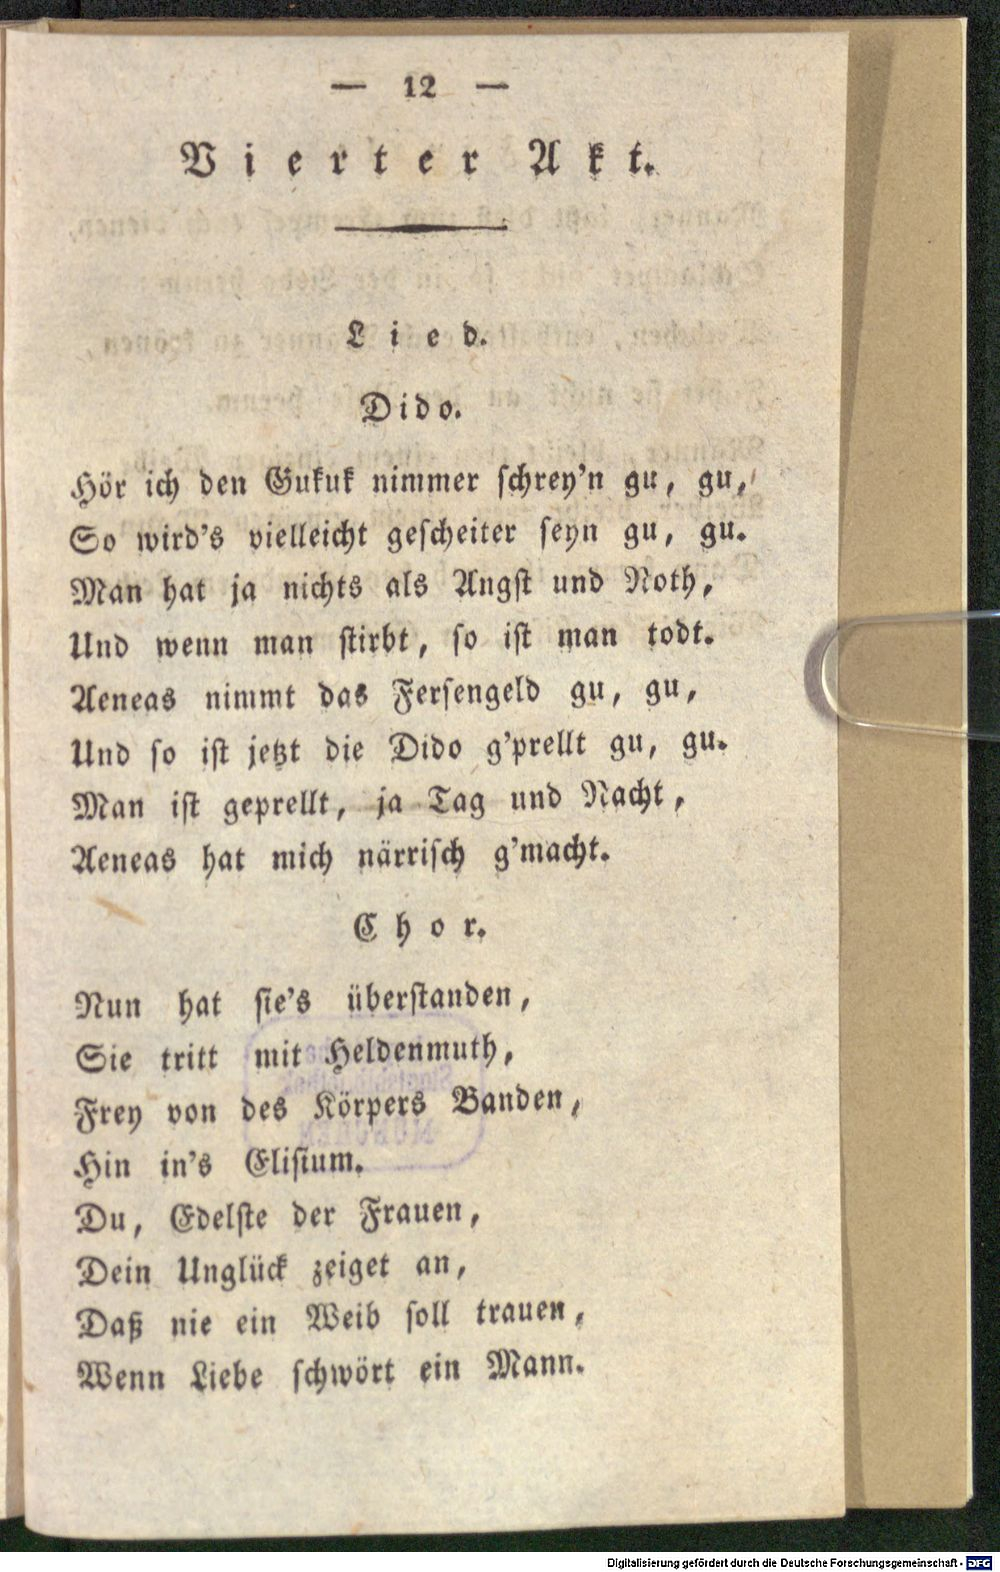 — 12 —
Vierter Akt.
Lied.
Dido.
Hör ich den Gukuk nimmer schrey'n gu, gu,
So wird's vielleicht gescheiter seyn gu, gu.
Man hat ja nichts als Angst und Noth,
Und wenn man stirbt, so ist man todt.
Aeneas nimmt das Fersengeld gu, gu,
Und so ist jetzt die Dido g'prellt gu, gu.
Man ist geprellt, ja Tag und Nacht,
Aeneas hat mich närrisch g'macht.
Chor.
Nun hat sie's überstanden,
Sie tritt mit Heldenmuth,
Frey von des Körpers Banden,
Hin in's Elisium.
Du, Edelste der Frauen,
Dein Unglück zeiget an,
Daß nie ein Weib soll trauen,
Wenn Liebe schwört ein Mann.
Digitalisierung gefördert durch die Deutsche Forschungsgemeinschaft - DFG